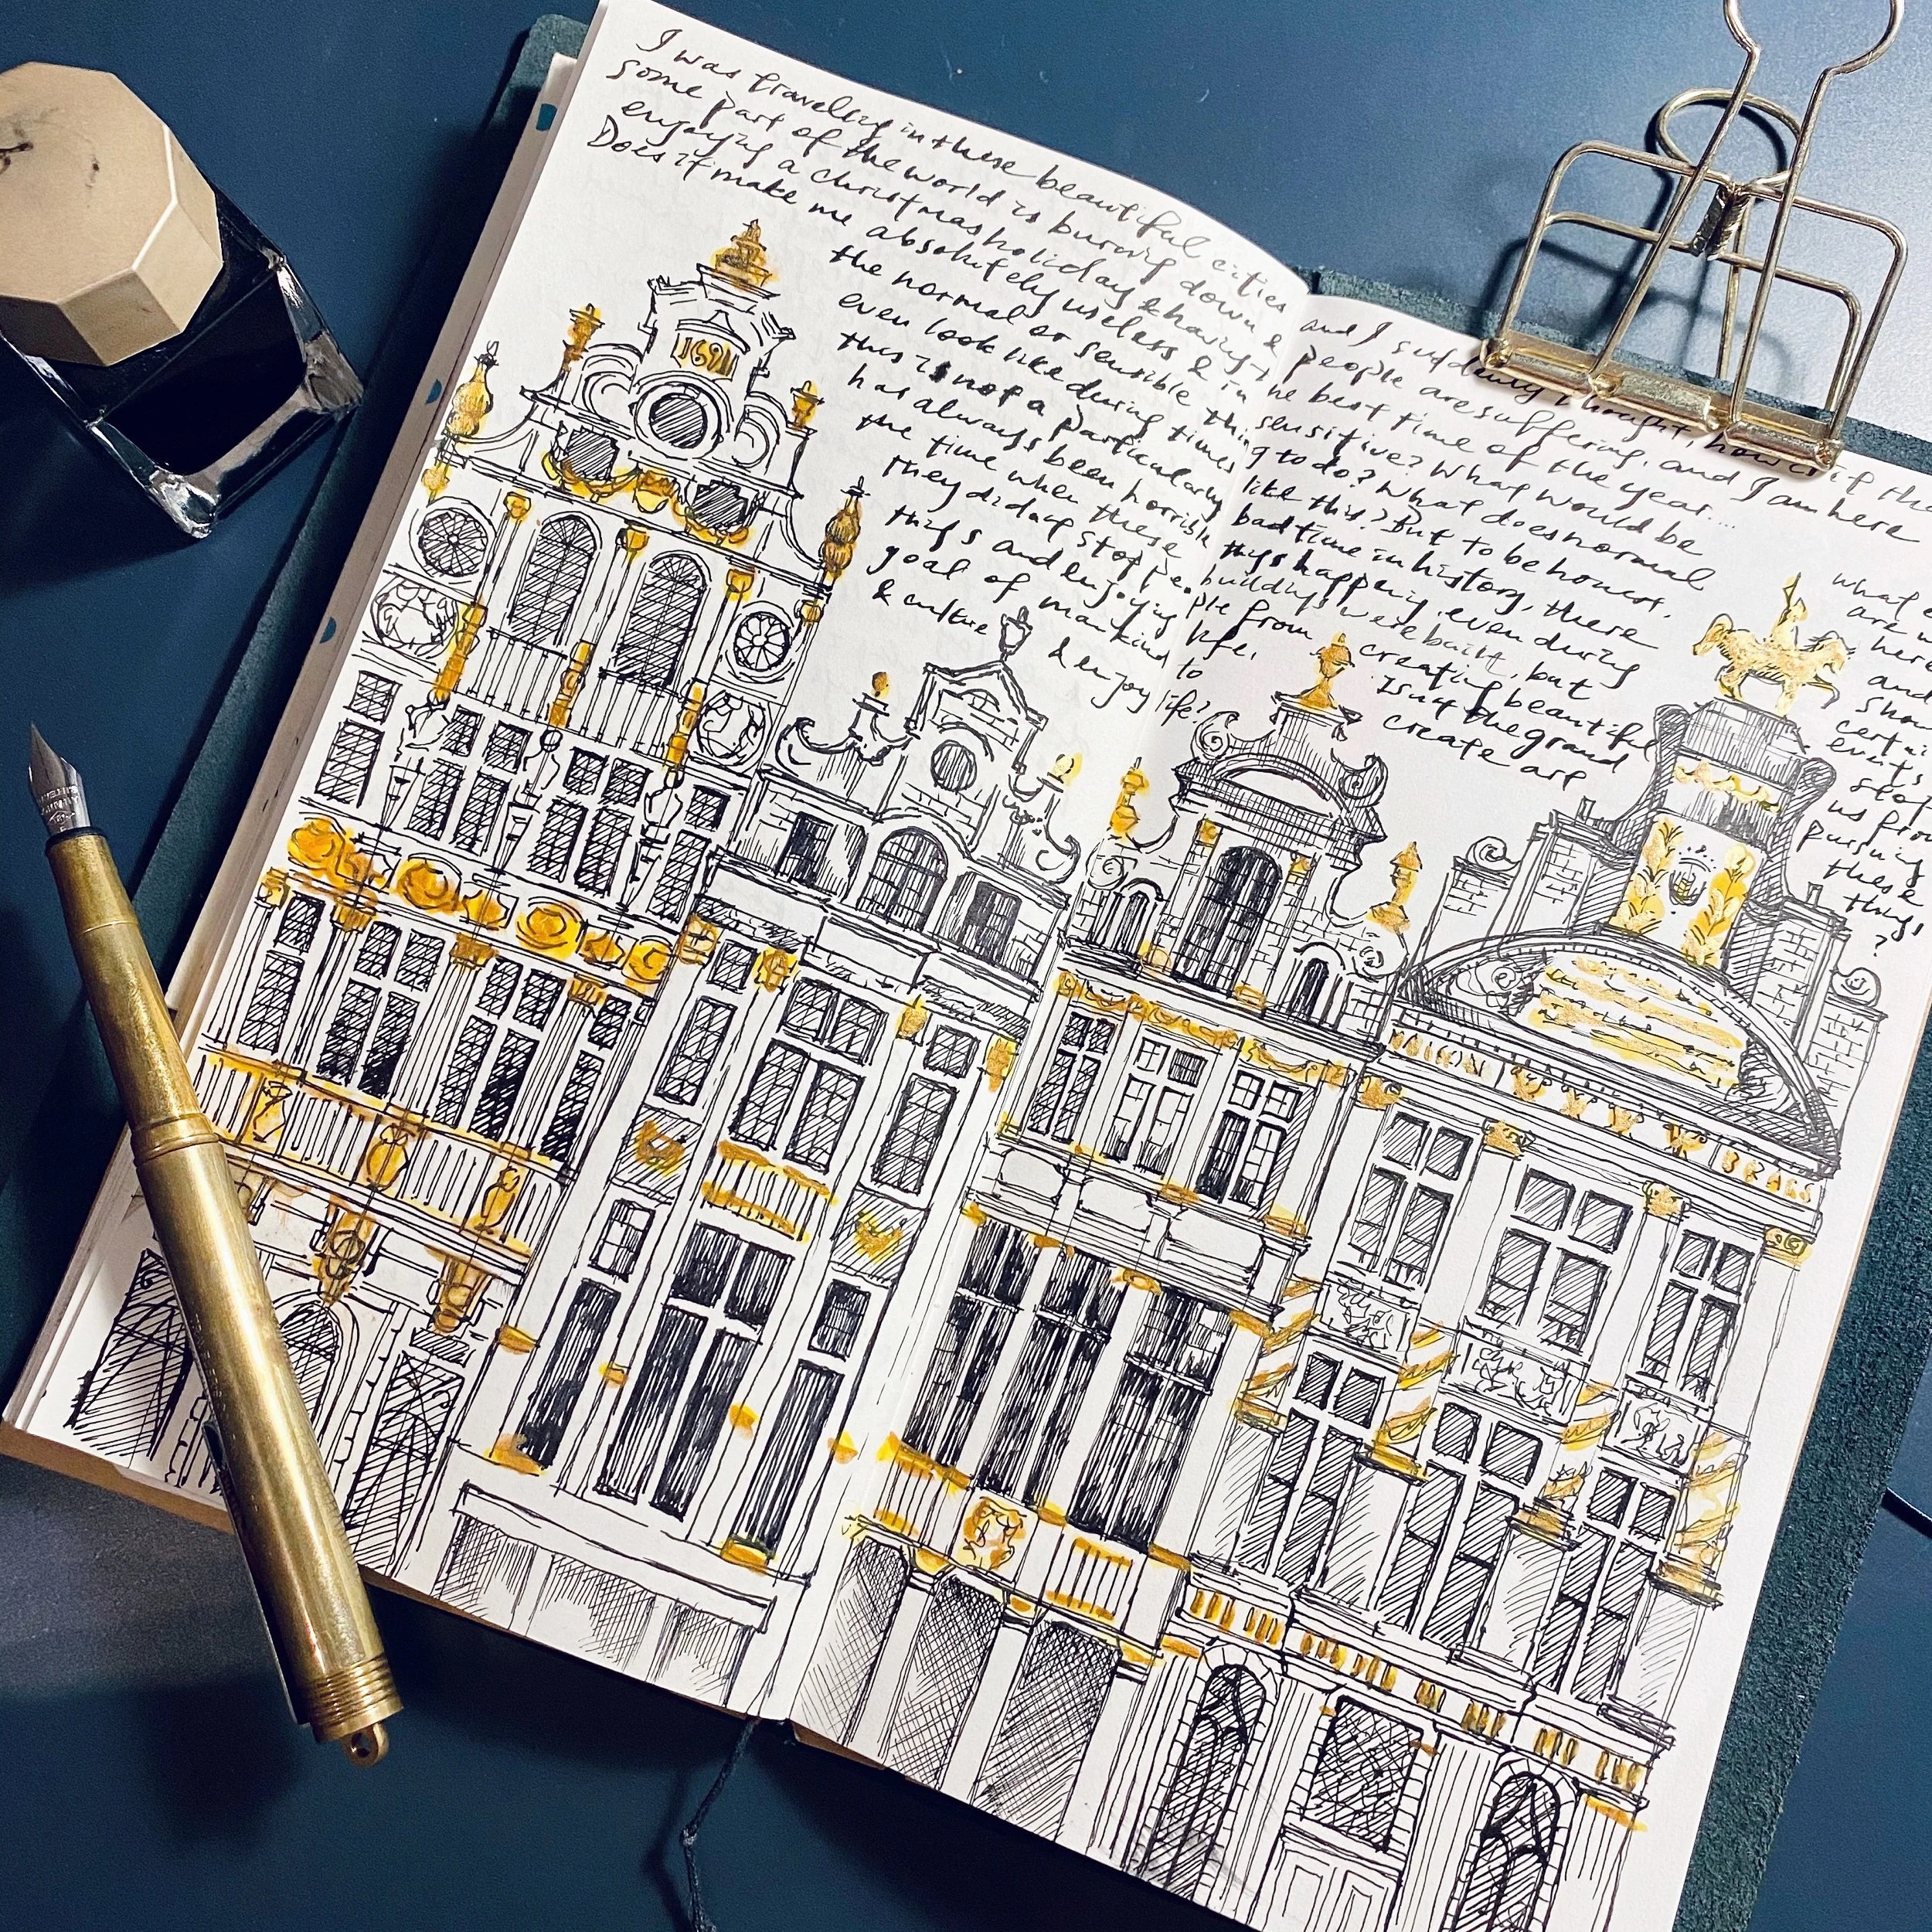 I was traveling in these beautiful cities and I suddenly thought, how if the
some part of the world is burning down & people are suffering, and I am here
enjoying a christmas holiday & having the best time of the year....
Does it make me absolutely useless & insensitive? What would be
the normal or sensible thing to do? What does normal
even look like during times like this? But to be honest,
this is not a particularly bad time in history, there
has always been horrible things happening, even during
the time when these buildings were built, but
they didn't stop people from creating beautiful
things and enjoying life. Isn't the grand
goal of mankind to create art
& culture & enjoy life?
what
are
here
and
events
stop
us from
pursuing
these
things,
?
1691
BRASS